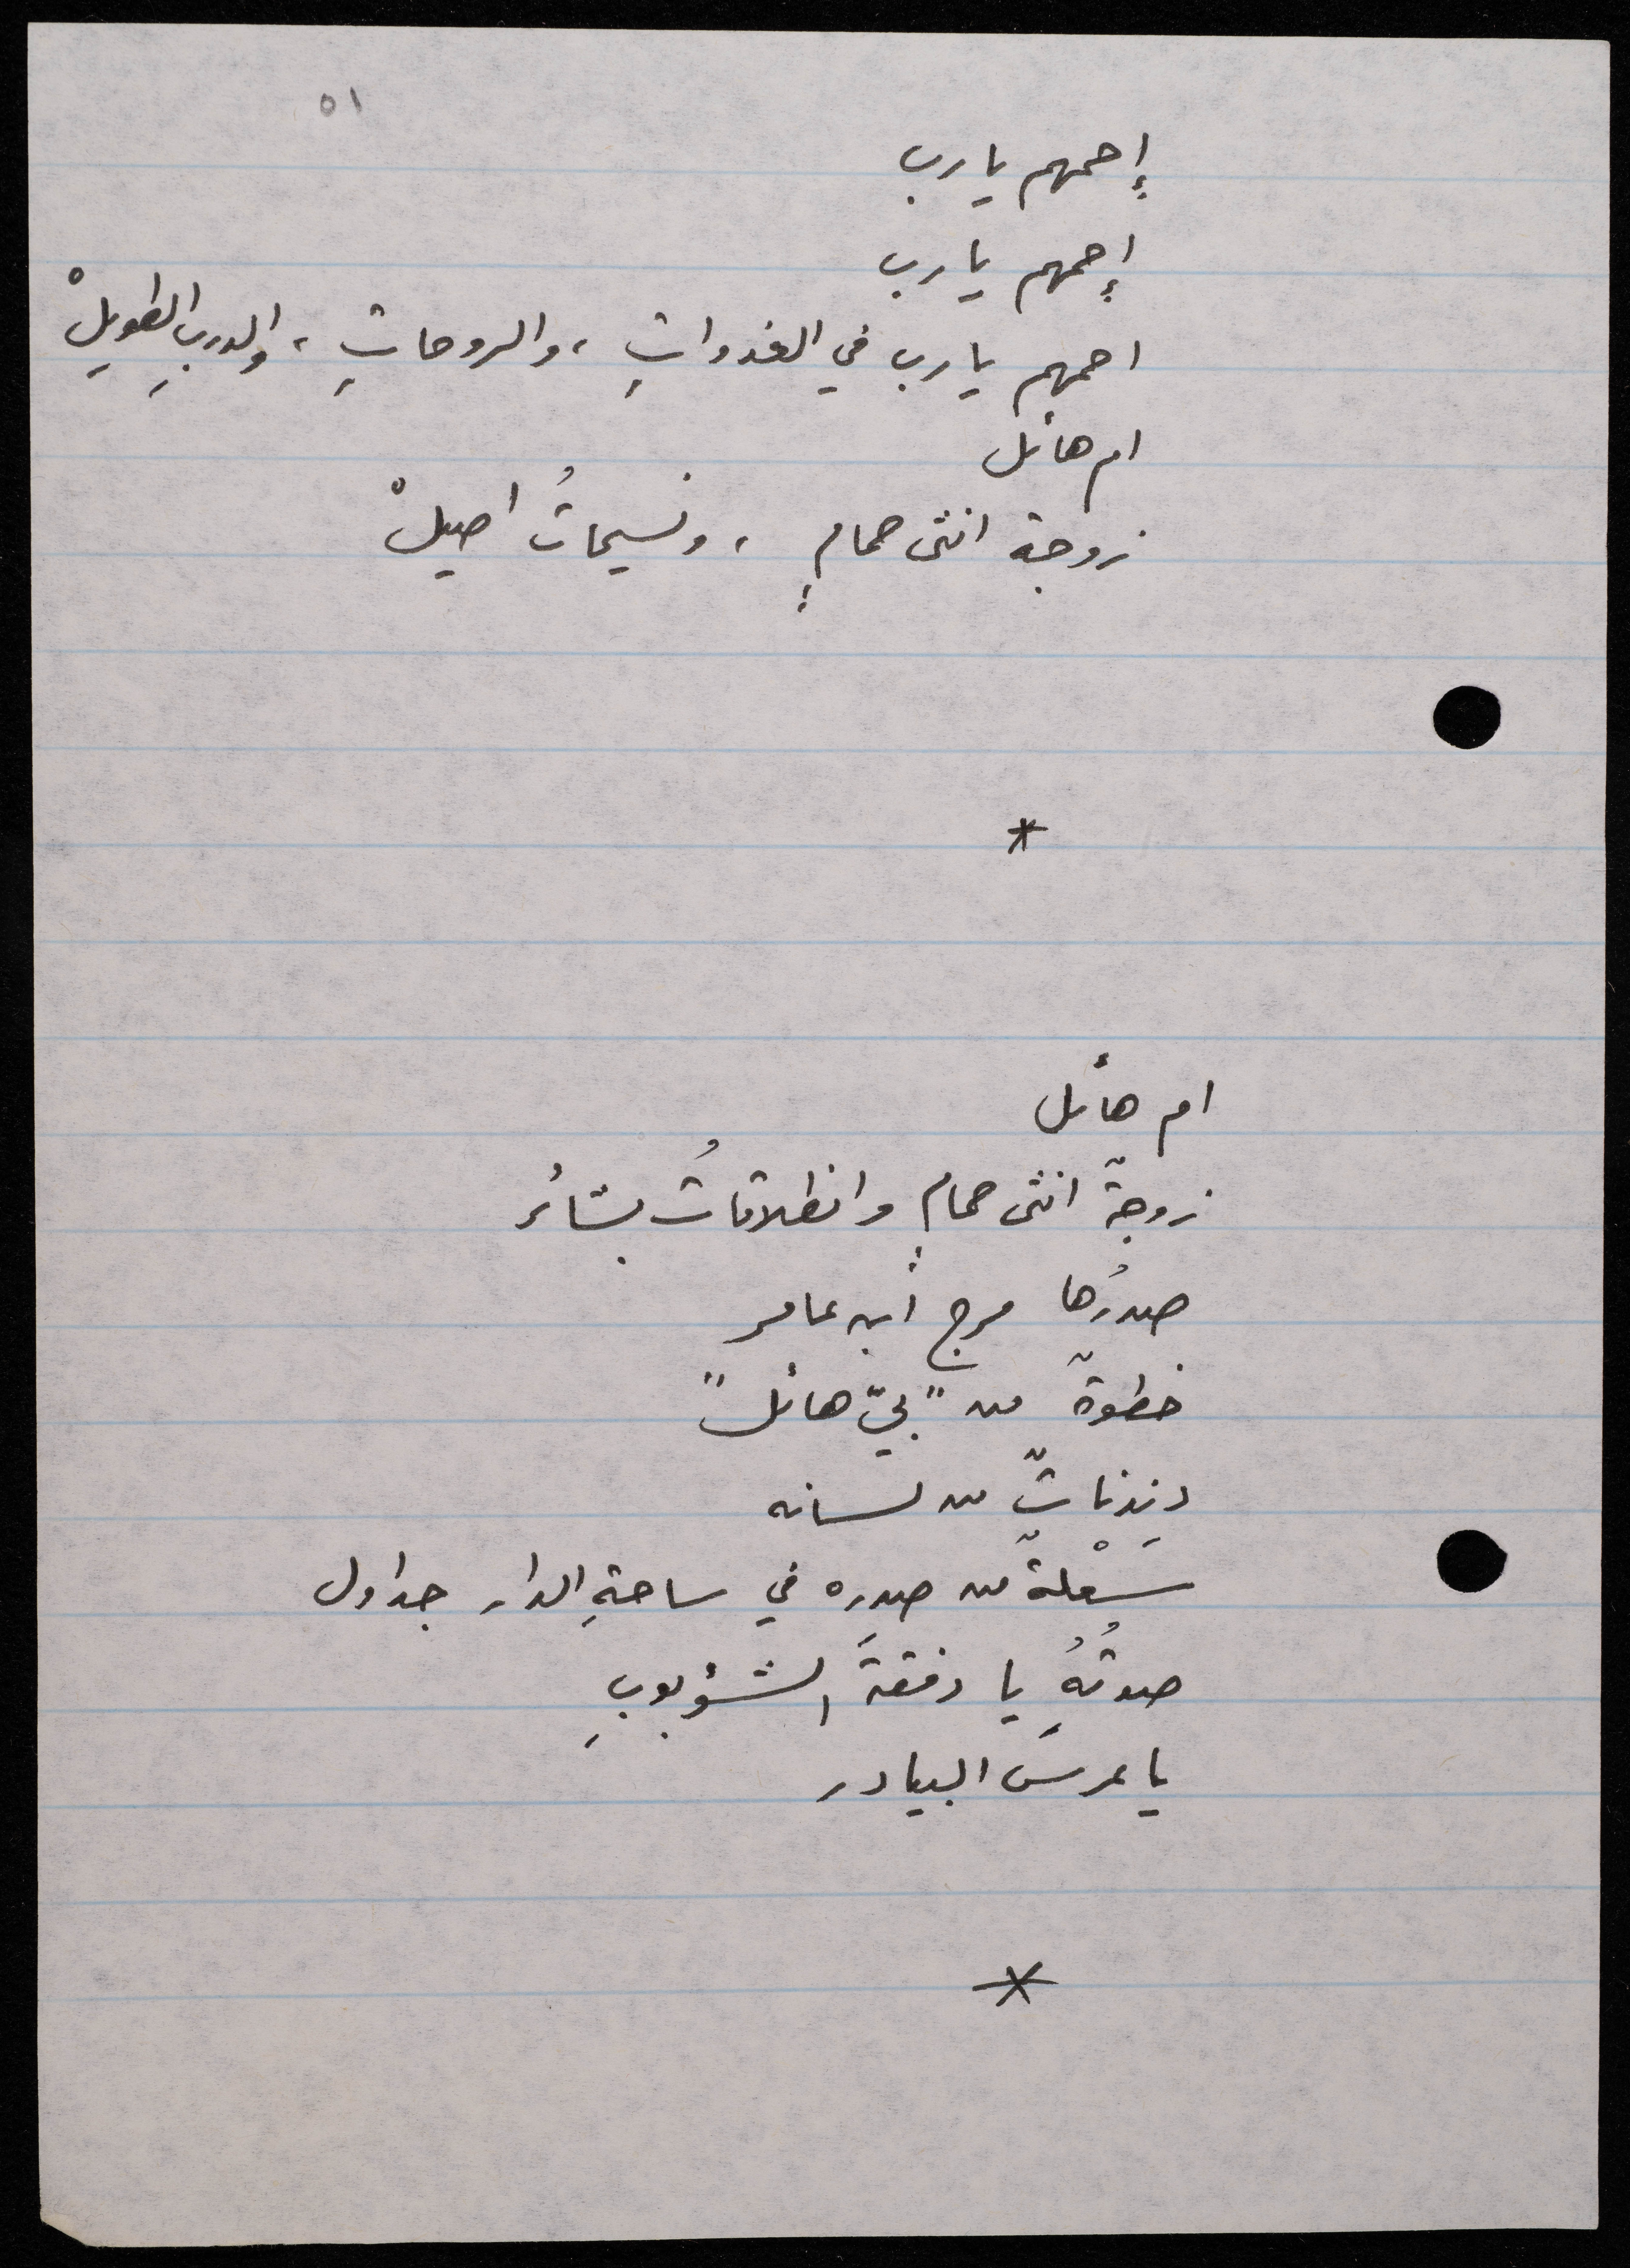 ٥١
إحمهم يا رب
إحمهم يا رب
احمهم يا رب في الغدواتِ ، والروحاتِ ، والدربِ الطويلْ
ام هائل
زوجة انثى حمامٍ ، ونسيماتُ اصيلْ
*
ام هائل
زوجةٌ انثى حمامٍ وانطلاقاتُ بشائر
صدرُها مرج ابن عامر
خطوةٌ من "بيّ هائل"
دندناتٌ من لسانه
سَعْلةٌ من صدرِه في ساحةِ الدار جداول
صوتُهُ يا دفقةَ الشؤبوبِ
يا عرسَ البيادر
*